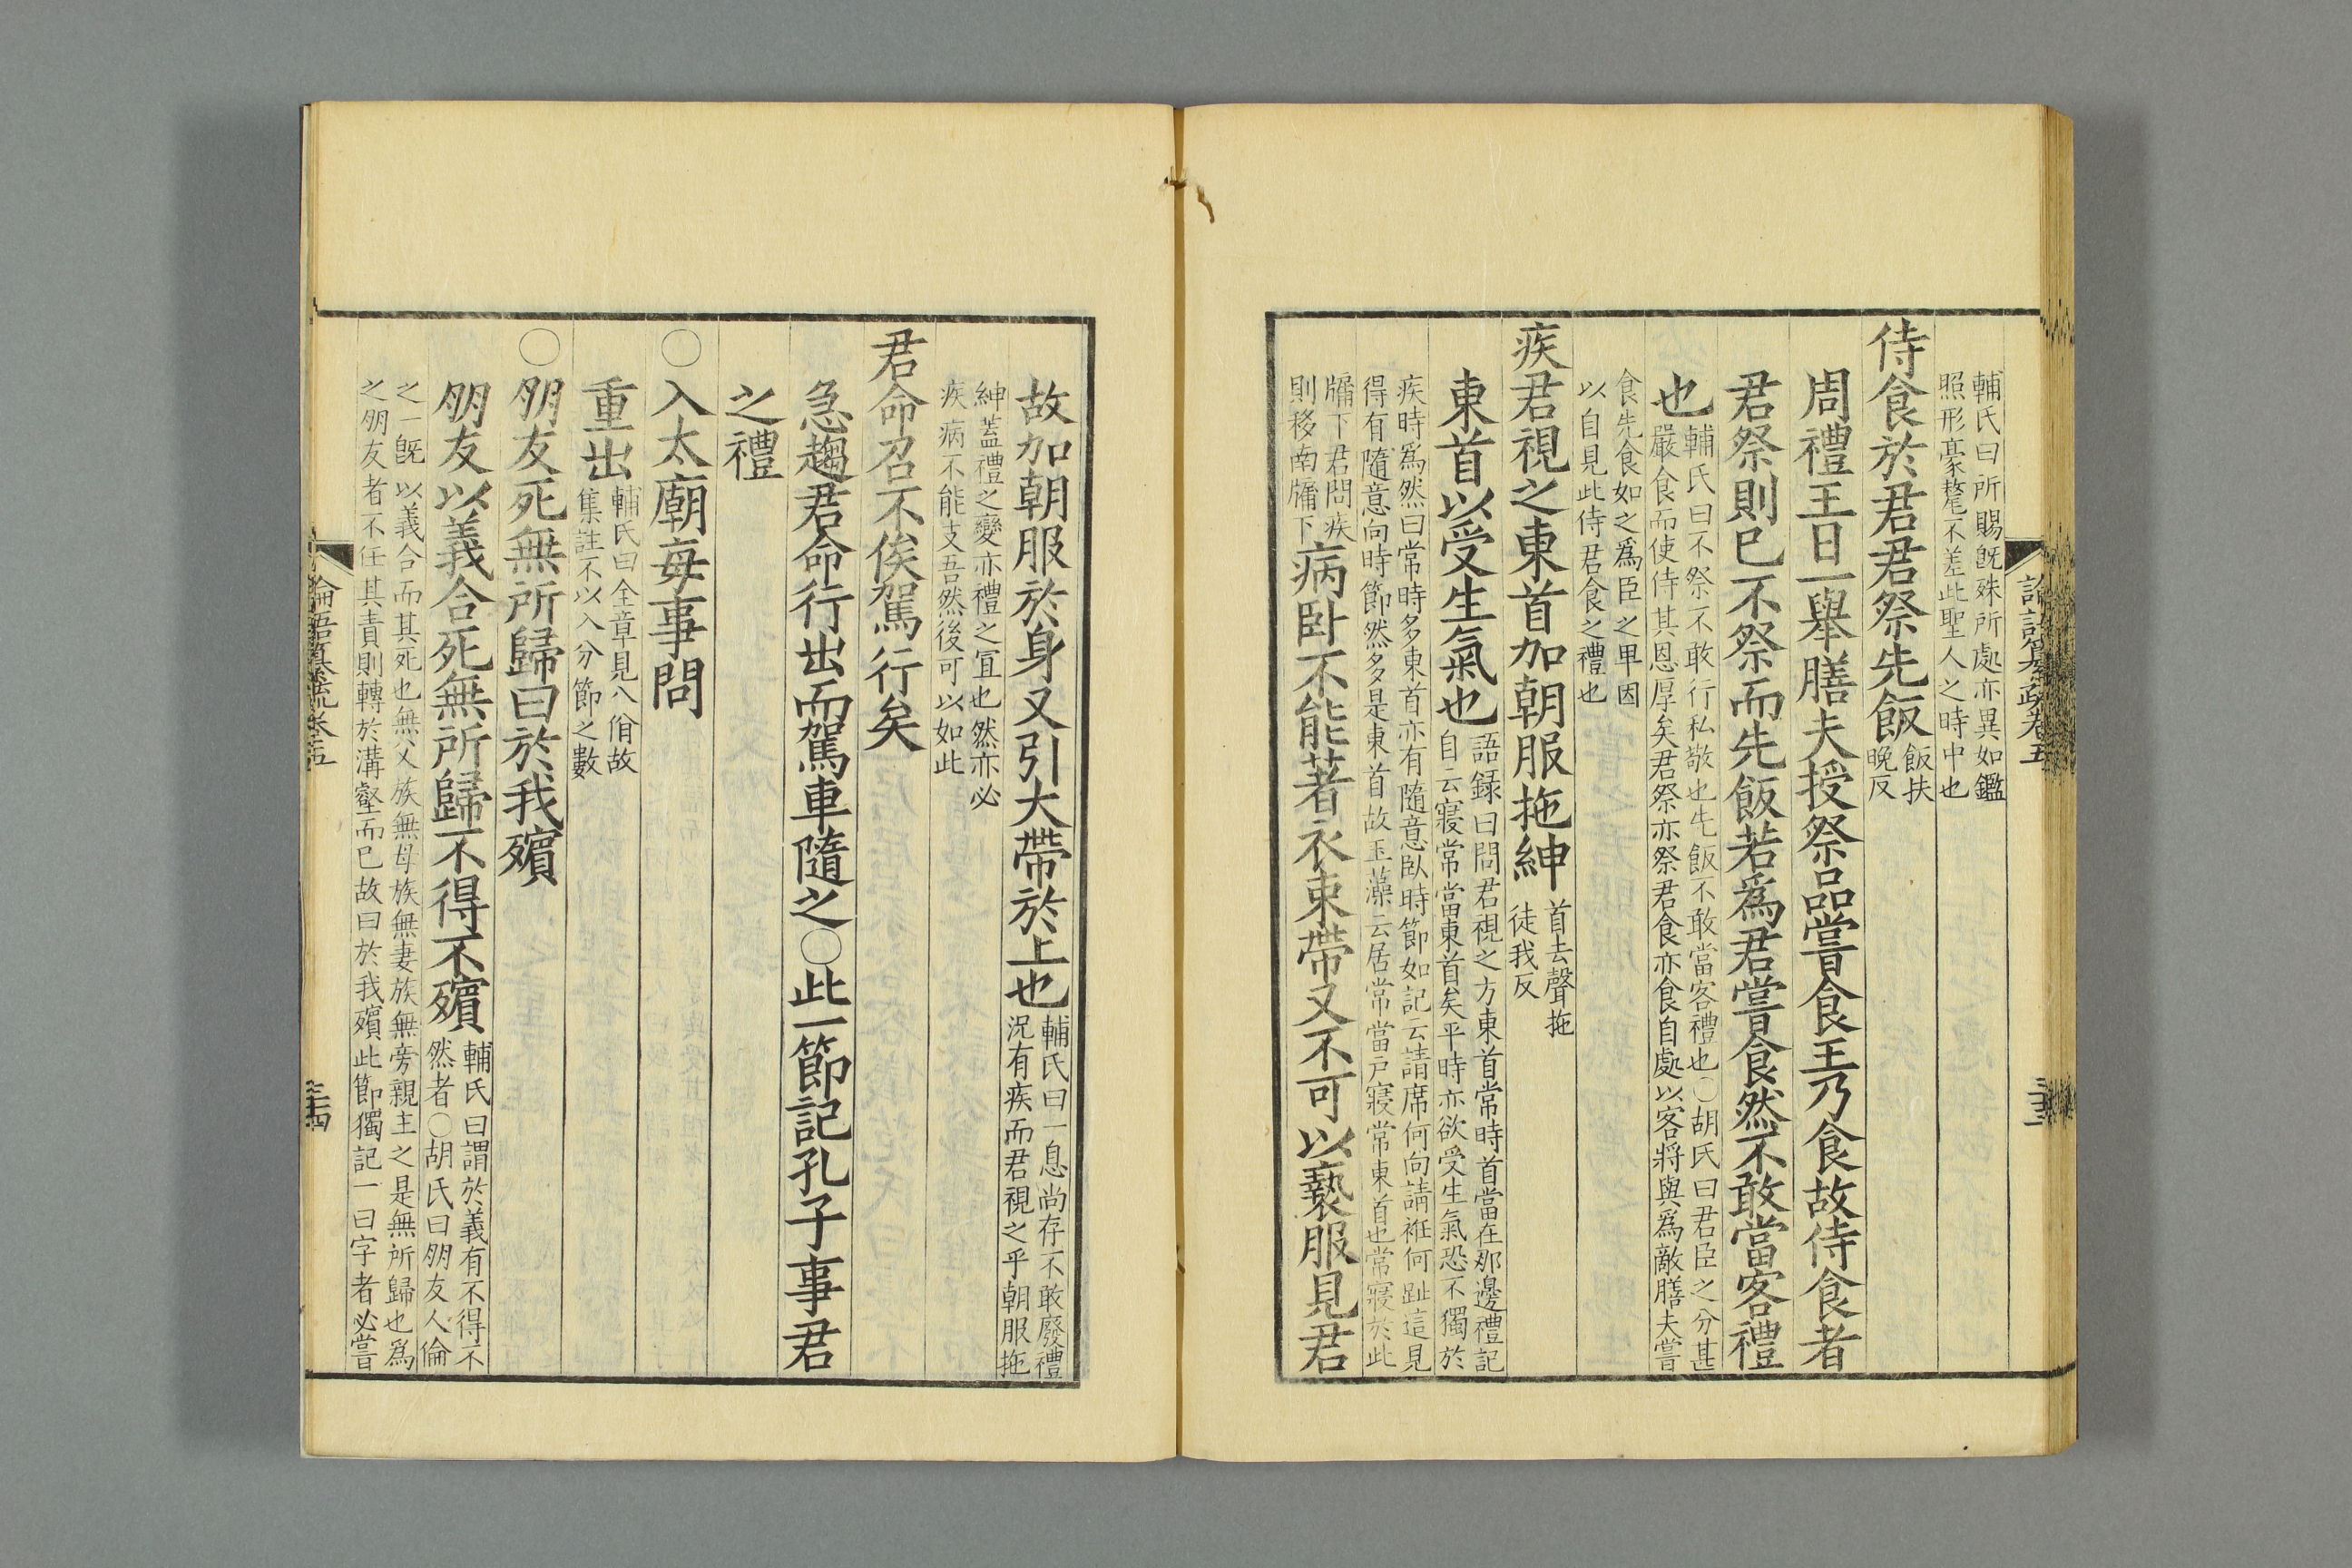 論語纂疏卷五
三十三
輔氏曰所賜旣殊所處亦異如鑑
照形豪氂不差此聖人之時中也
侍食於君君祭先飯飯扶
晚反
周禮王日一舉膳夫授祭品嘗食王乃食故侍食者
君祭則已不祭而先飯若爲君嘗食然不敢當客禮
也輔氏曰不祭不敢行私敬也先飯不敢當客禮也○胡氏曰君臣之分甚
嚴食而使侍其恩厚矣君祭亦祭君食亦食自處以客將與爲敵膳夫嘗
食先食如之爲臣之卑因
以自見此侍君食之禮也
疾君視之東首加朝服拖紳首去聲拖
徒我反
東首以受生氣也語録曰問君視之方東首常時首當在那邊禮記
自云寢常當東首矣平時亦欲受生氣恐不獨於
疾時爲然曰常時多東首亦有隨意臥時節如記云請席何向請袵何趾這見
得有隨意向時節然多是東首故玉藻云居常當戶寢常東首也常寢於此
牖下君問疾
則移南牖下病卧不能著衣束帶又不可以褻服見君
故加朝服於身又引大帶於上也輔氏曰一息尚存不敢廢禮
況有疾而君視之乎朝服拖
紳蓋禮之變亦禮之冝也然亦必
疾病不能支吾然後可以如此
君命召不俟駕行矣
急趨君命行出而駕車隨之○此一節記孔子事君
之禮
○入太廟每事問
重出輔氏曰全章見八佾故
集註不以入分節之數
○朋友死無所歸曰於我殯
朋友以義合死無所歸不得不殯輔氏曰謂於義有不得不
然者○胡氏曰朋友人倫
之一旣以義合而其死也無父族無母族無妻族無旁親主之是無所歸也爲
之朋友者不任其責則轉於溝壑而已故曰於我殯此節獨記一曰字者必嘗
論語纂疏卷五
三十四